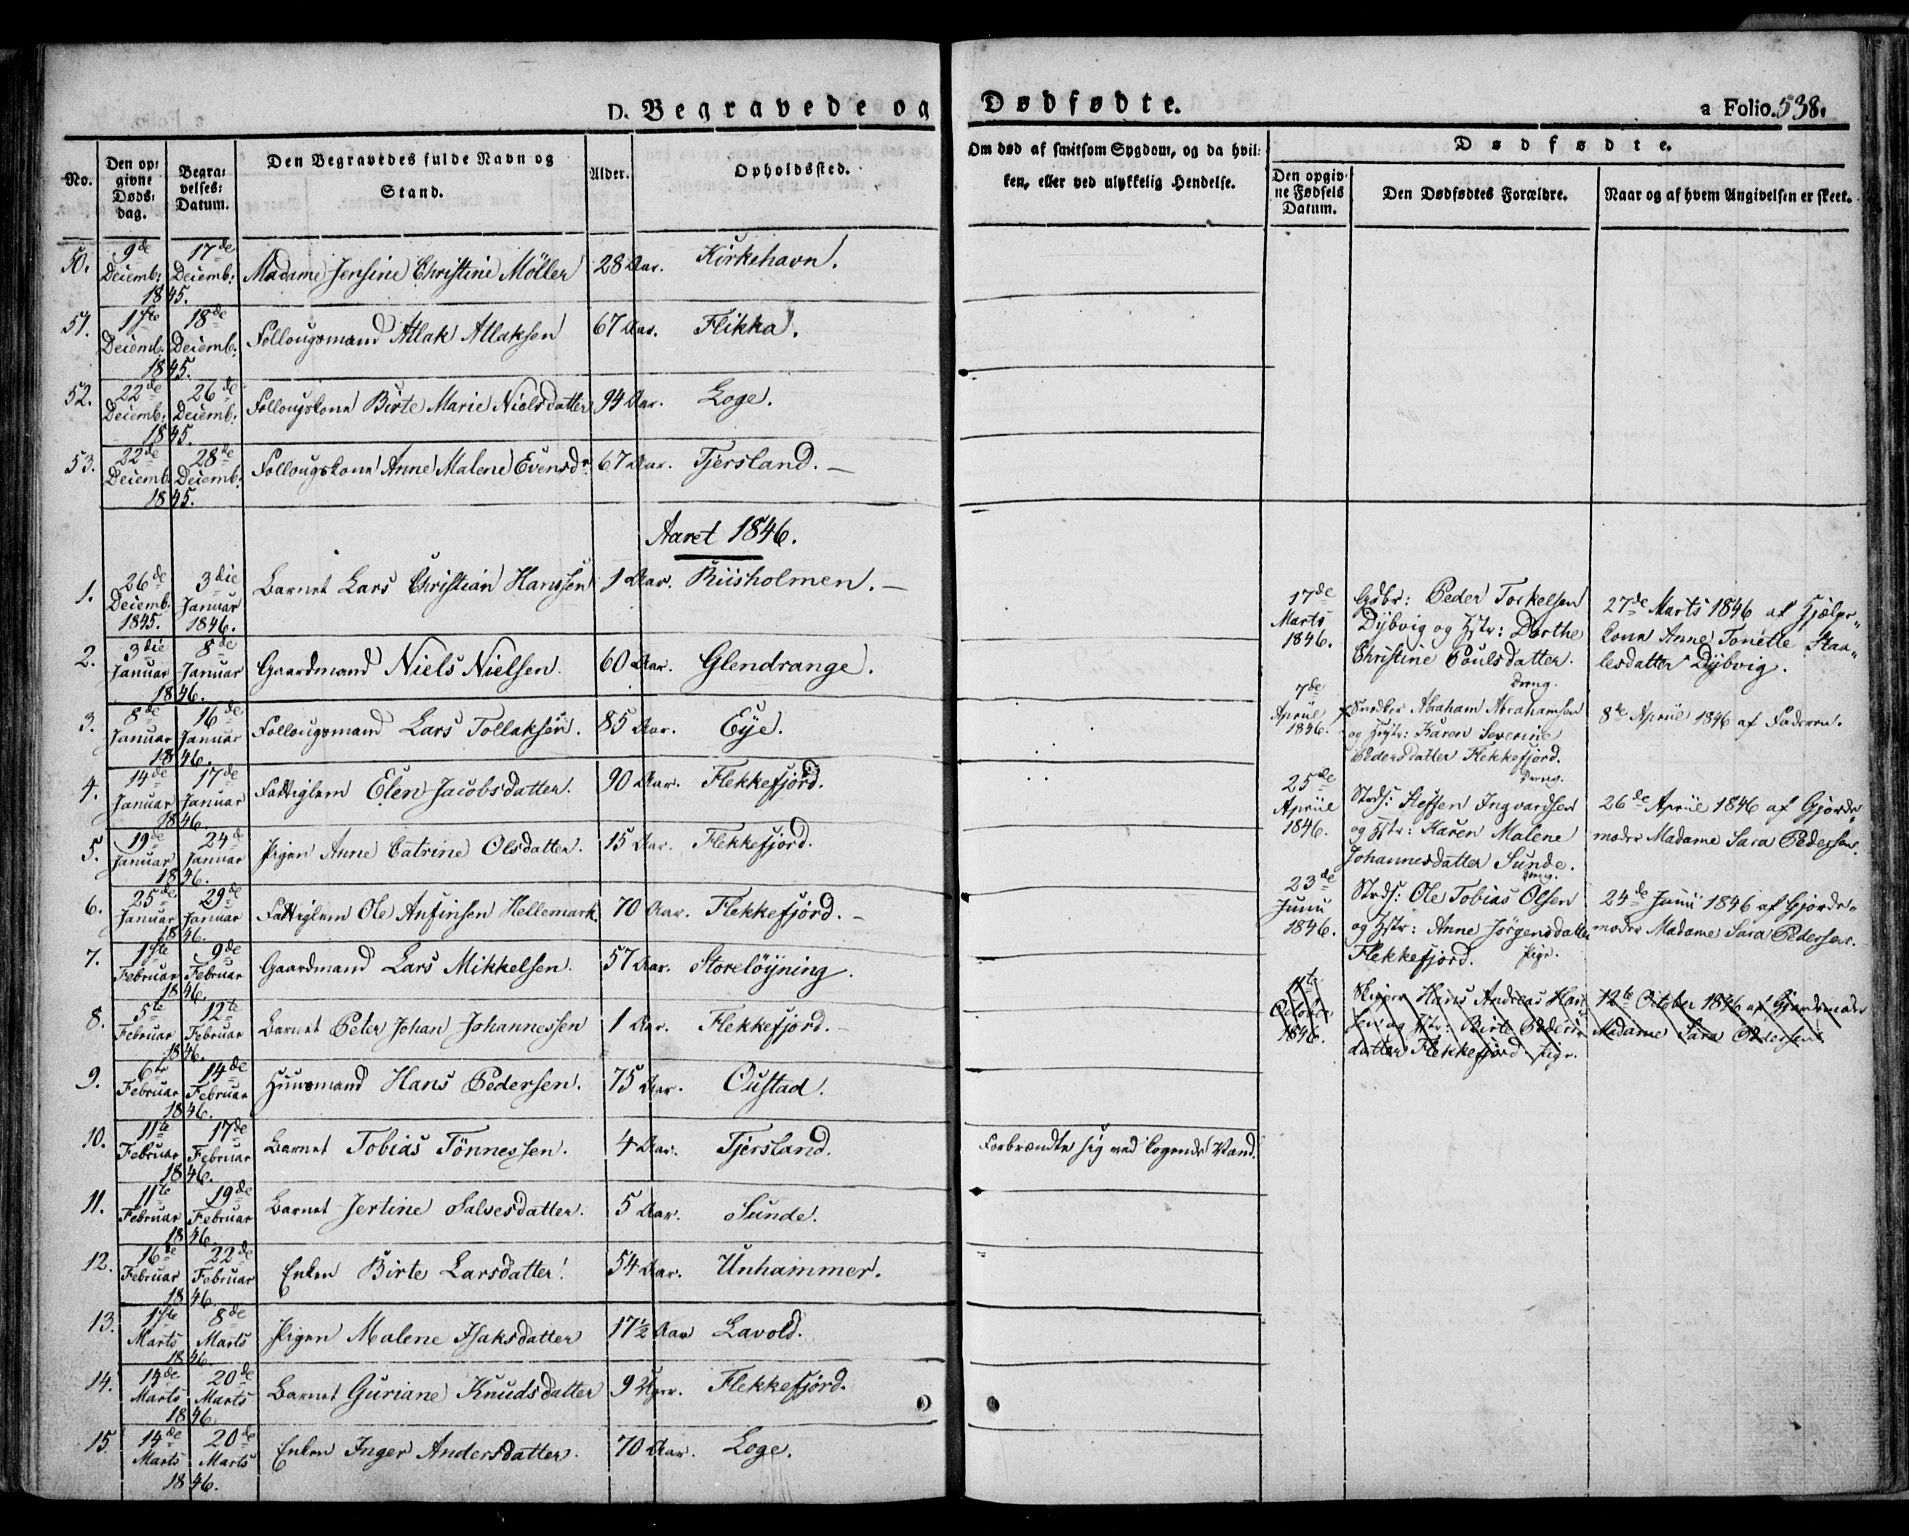 D. Begravede og Dødfødte.
a Folio. 538.
No.
Den op-
givne
Døds-
dag.
Begra-
velses-
Datum.
Den Begravedes fulde Navn og
Stand.
Alder.
Opholdssted.
Om død af smitsom Sygdom, og da hvil-
ken, eller ved ulykkelig Hendelse.
Dødfødte.
Den opgiv-
ne Fødsels
Datum.
Den Dødfødtes Forældre.
Naar og af hvem Angivelsen er skeet.
50. 9de Decemb: 1845. 17de Decemb: Madame Jensine Christine Möller 28 Aar. Kirkehavn.
51. 1ste Decemb: 1845. 18de Decemb: Follougsmand Atlak Atlaksen 67 Aar. Flikka.
52. 22de Decemb: 1845. 26de Decemb: Follougskone Birte Marie Nielsdatter 94 Aar. Loge.
53. 22de Decemb: 1845. 28de Decemb: Follougskone Anne Malene Evensdr 67 Aar. Tjersland. –
Aaret 1846.
1. 26de Decemb. 1845. 3die Januar 1846. Barnet Lars Christian Hanssen 1 Aar. Riisholmen. –
2. 3die Januar 1846. 8de Januar Gaardmand Niels Nielsen. 60 Aar. Glendrange.
3. 8de Januar 1846. 16de Januar Follougsmand Lars Tollaksen. 85 Aar. Eye.
4. 14de Januar 1846. 17de Januar Fattiglem Elen Jacobsdatter. 90 Aar. Flekkefjord.
5. 19de Januar 1846. 24de Januar Pigen Anne Catrine Olsdatter. 15 Aar. Flekkefjord.
6. 25de Januar 1846. 29de Januar Fattiglem Ole Anfinsen Hellemark. 70 Aar. Flekkefjord. –
7. 1ste Februar 1846. 9de Februar Gaardmand Lars Mikkelsen. 57 Aar. Storelöyning.
8. 5te Februar 1846. 12te Februar Barnet Peter Johan Johannessen 1 Aar. Flekkefjord. –
9. 6te Februar 1846. 14de Februar Huusmand Hans Pedersen. 75 Aar. Oustad.
10. 11te Februar 1846. 17de Februar Barnet Tobias Tönnessen. 4 Aar. Tjersland. Forbrændte sig ved kogende Vand.
11. 11te Februar 1846. 19de Februar Barnet Jertine Salvesdatter. 5 Aar. Sunde.
12. 16de Februar 1846. 22de Februar Enken Birte Larsdatter. 54 Aar. Unhammer.
13. 1ste Marts 1846. 8de Marts Pigen Malene Isaksdatter 17½ Aar Lavold.
14. 14de Marts 1846. 20de Marts Barnet Guriane Knudsdatter 9 Aar. Flekkefjord.
15. 14de Marts 1846. 20de Marts Enken Inger Andersdatter. 70 Aar. Loge.
17de
Marts
1846.
Gdbr: Peder Torkelsen
Dybvig og Hstr: Dorthe
Christine Poulsdatter.
Dreng.
27de Marts 1846 af Hjelpe-
kone Anne Tonette Staa-
lesdatter Dybvig.
7de
Apriil
1846.
Snedker Abraham Abrahamsen
og Hustr: Karen Severine
Pedersdatter Flekkefjord.
Dreng.
8de Apriil 1846 af Faderen.
25de
Apriil
1846.
Strds: Steffen Ingvardsen
og Hstr: Karen Malene
Johannesdatter Sunde.
Dreng.
26de Apriil 1846 af Gjorde-
moder Madame Sara Pedersen.
23de
Junii
1846.
Strds: Ole Tobias Olsen
og Hstr: Anne Jörgensdatter
Flekkefjord. Pige.
24de Junii 1846 af Gjorde-
moder Madame Sara Pedersen.
11te
October
1846.
Skipper Hans Andreas Han-
sen og Hstr: Birte Peders-
datter Flekkefjord. Pige.
12te October 1846 af Gjordemoder
Madame Sara Pedersen